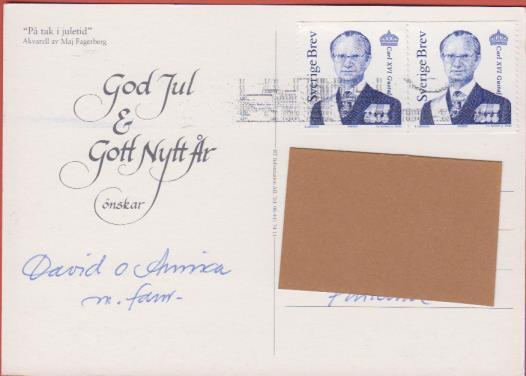 "På tak i juletid"
Akvarell av Maj Fagerberg
God Jul
&
Gott Nytt År
önskar
David o Annica
m. fam.
Sverige Brev
Carl XVI Gustaf
Sverige Brev
Carl XVI Gustaf